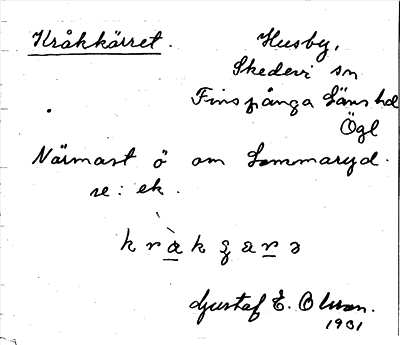 Kråkkärret.
Husby,
Skedevi sn
Finspånga Läns hd
Ögl
Närmast ö om Sommaryd.
se: ek.
Gustaf E. Olsson.
1931